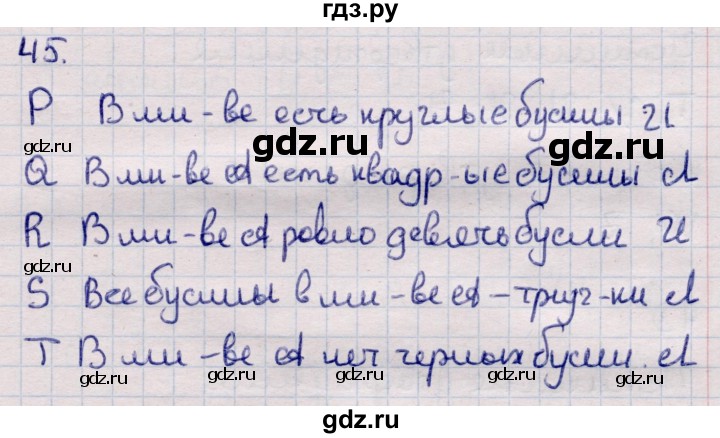 гдз.ру
45.
P В мн-ве есть круглые бусины И
gdz.ru gdz.ru
Q В мн-ве A есть квадр-ые бусины Л
gdz.ru gdz.ru gdz.ru
R В мн-ве A ровно девять бусин И
gdz.ru gdz.ru
S Все бусины в мн-ве A – треуг-ки Л
gdz.ru
T В мн-ве A нет черных бусин. Л
gdz.ru gdz.ru gdz.ru gdz.ru
gdz.ru